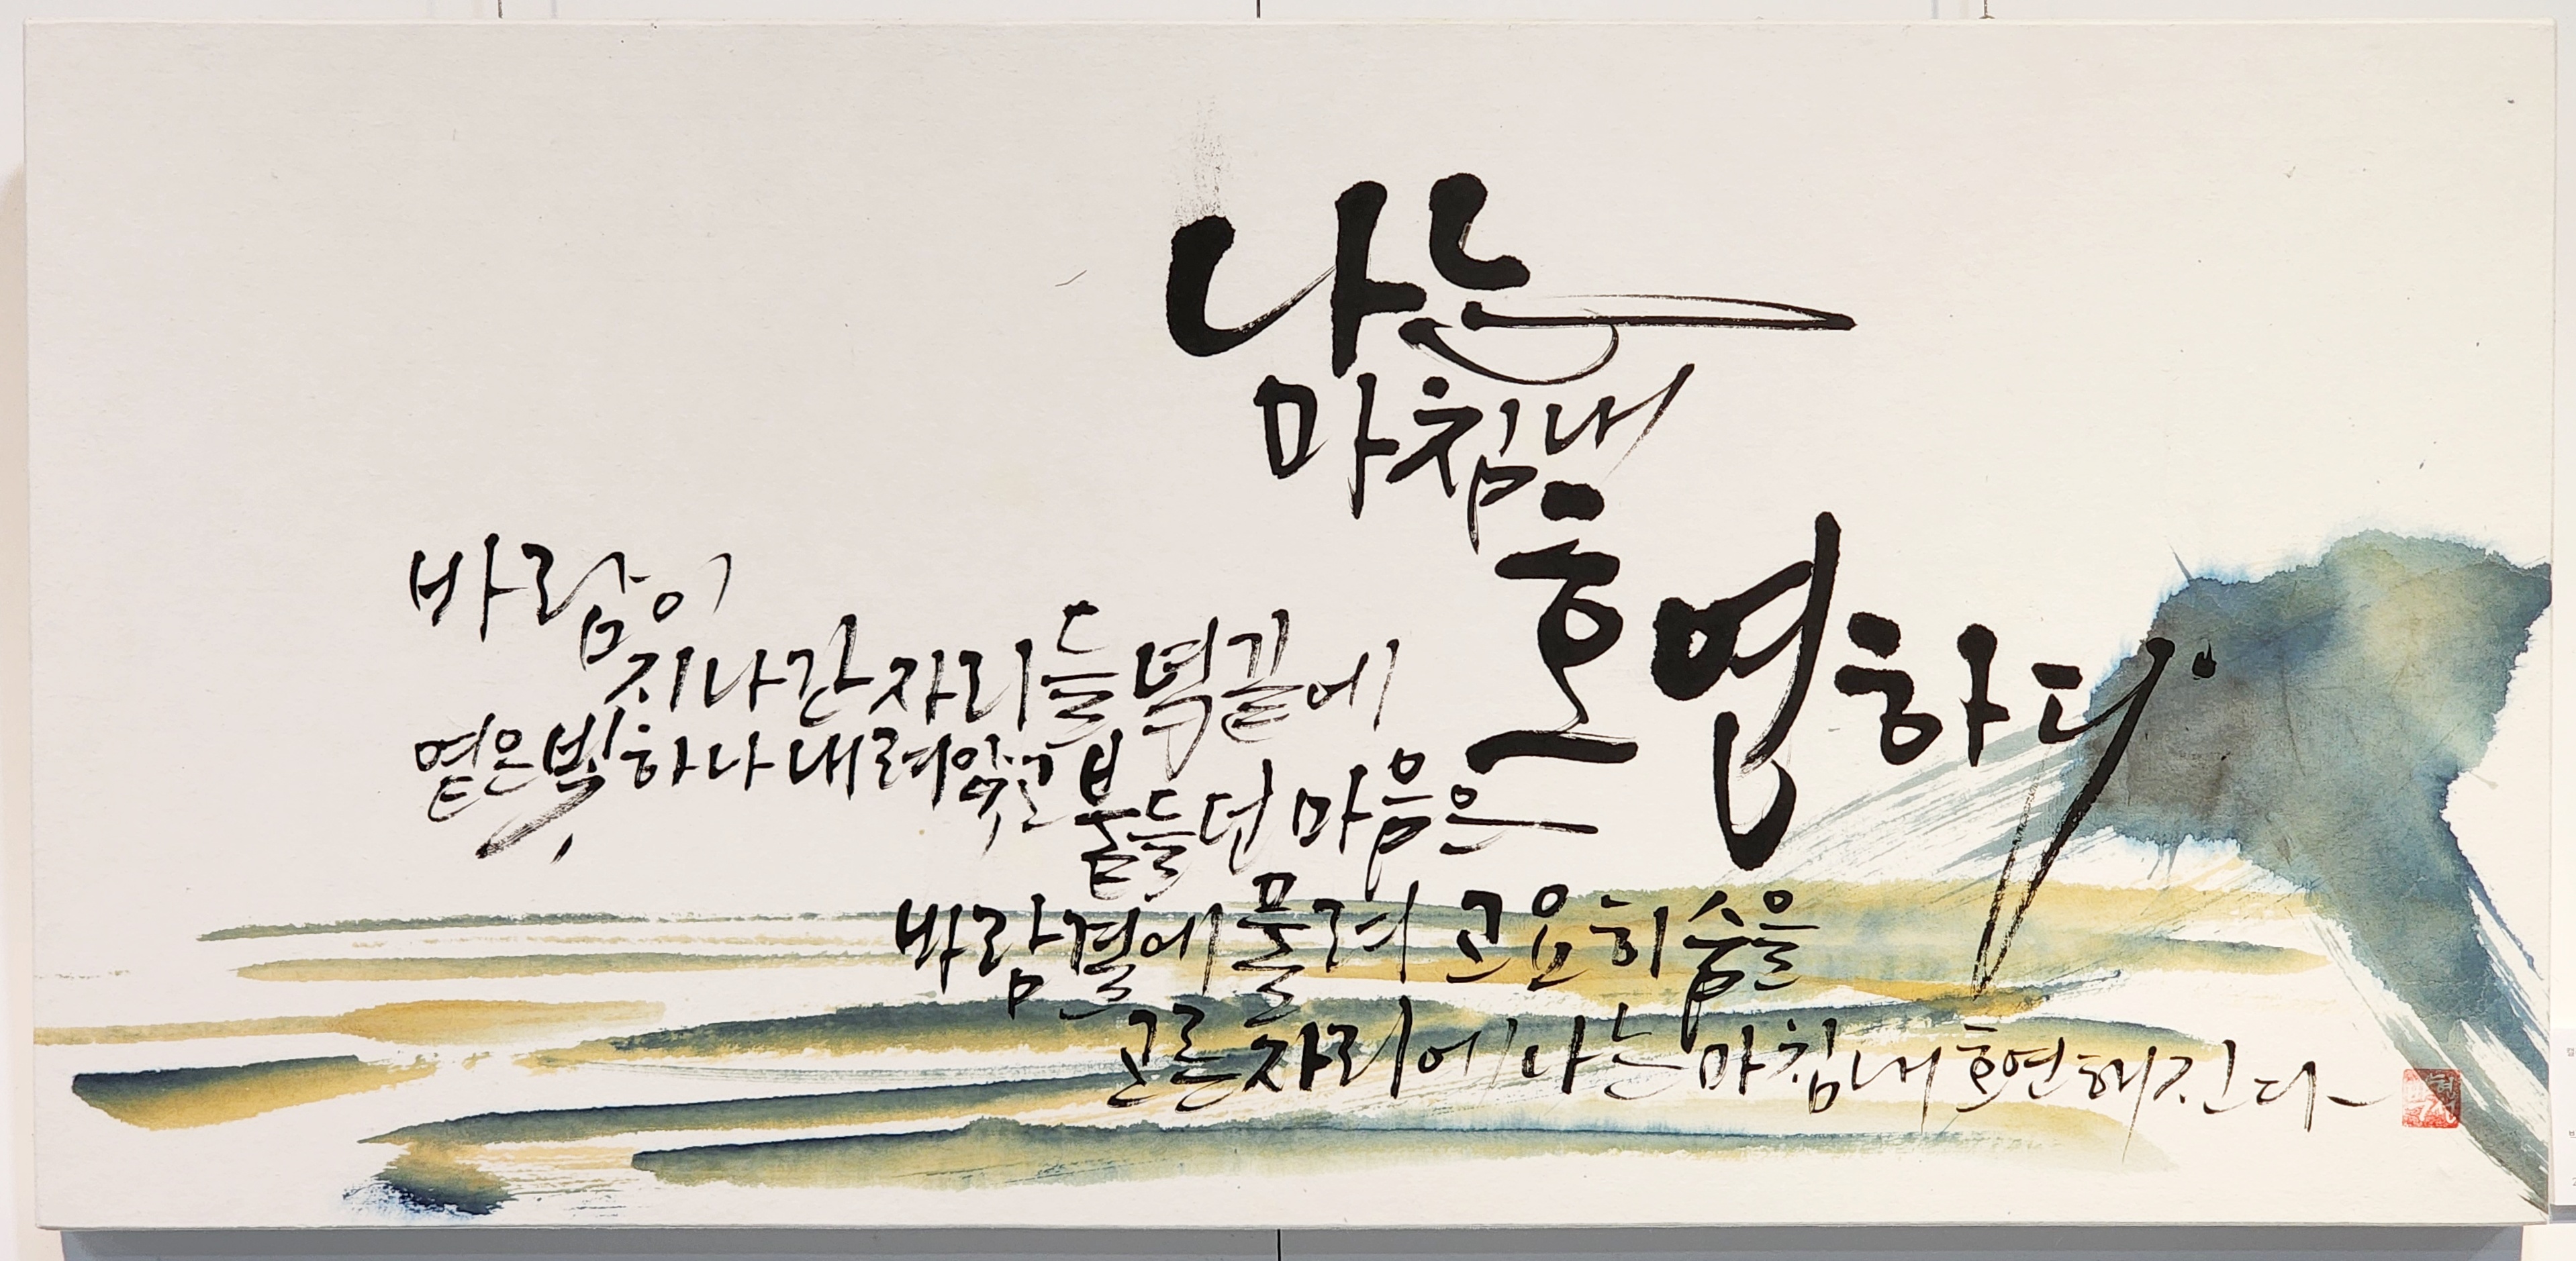 나는
마침내
호연하다
바람이
지나간 자리 들녘 끝에
옅은 빛 하나 내려앉고 붙들던 마음은
바람결에 풀려 고요히 숨을
고른 자리에 나는 마침내 호연해진다